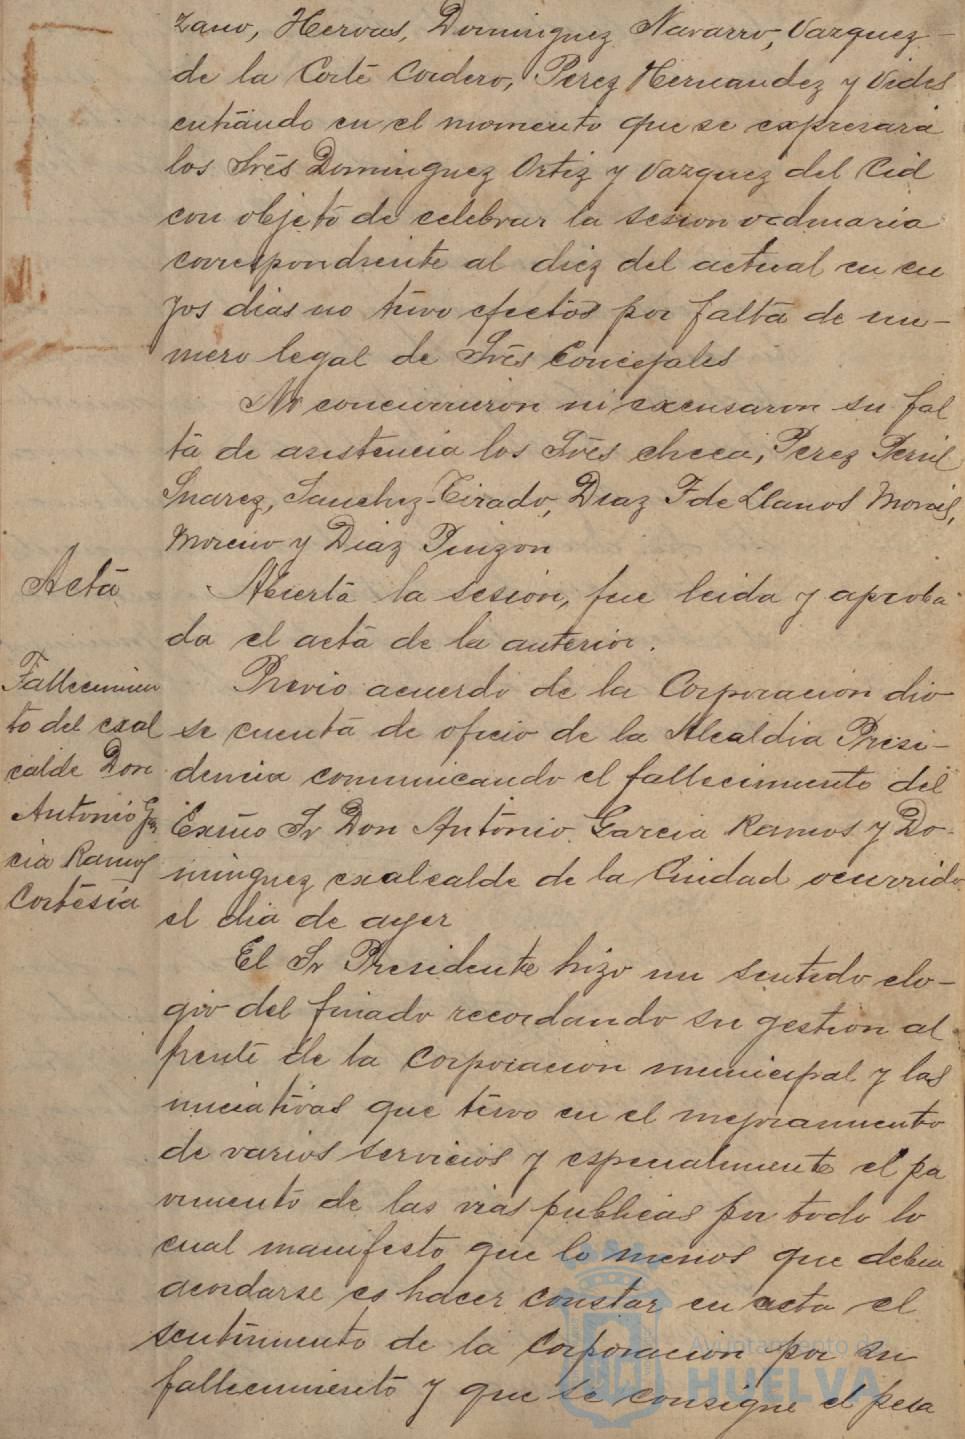 zano, Hervas, Dominguez Navarro, Vazquez
de la Corte Cordero, Perez Hernandez y Vides
entrando en el momento que se expresará
los Srés Dominguez Ortiz y Vazquez del Cid
con objeto de celebrar la sesion ordinaria
correspondiente al diez del actual en cu
yos dias no tuvo efectos por falta de nu-
mero legal de Srés Concejales
No concurrieron ni excusaron su fal
ta de asistencia los Srés Checa, Perez
Suarez, Sanchez-Tirado, Diaz F de Llanos
Moreno y Diaz Pinzon
Acta
Abierta la sesion, fue leida y aproba
da el acta de la anterior.
Fallecimien
to del exal
calde Don
Antonio Gar
cia Ramos
Cortesía
Previo acuerdo de la Corporacion dio
se cuenta de oficio de la Alcaldia Presi-
dencia comunicando el fallecimiento del
Exmo Sr Don Antonio Garcia Ramos y Do-
minguez exalcalde de la Ciudad ocurrido
el dia de ayer
El Sr Presidente hizo un sentido elo-
gio del finado recordando su gestion al
frente de la Corporacion municipal y las
iniciativas que tuvo en el mejoramiento
de varios servicios y especialmente el pa
vimento de las vias publicas por todo lo
cual manifesto que lo menos que debia
acordarse es hacer constar en acta el
sentimiento de la Corporacion por su
fallecimiento y que se consigne el pesa
Ayuntamiento de
HUELVA